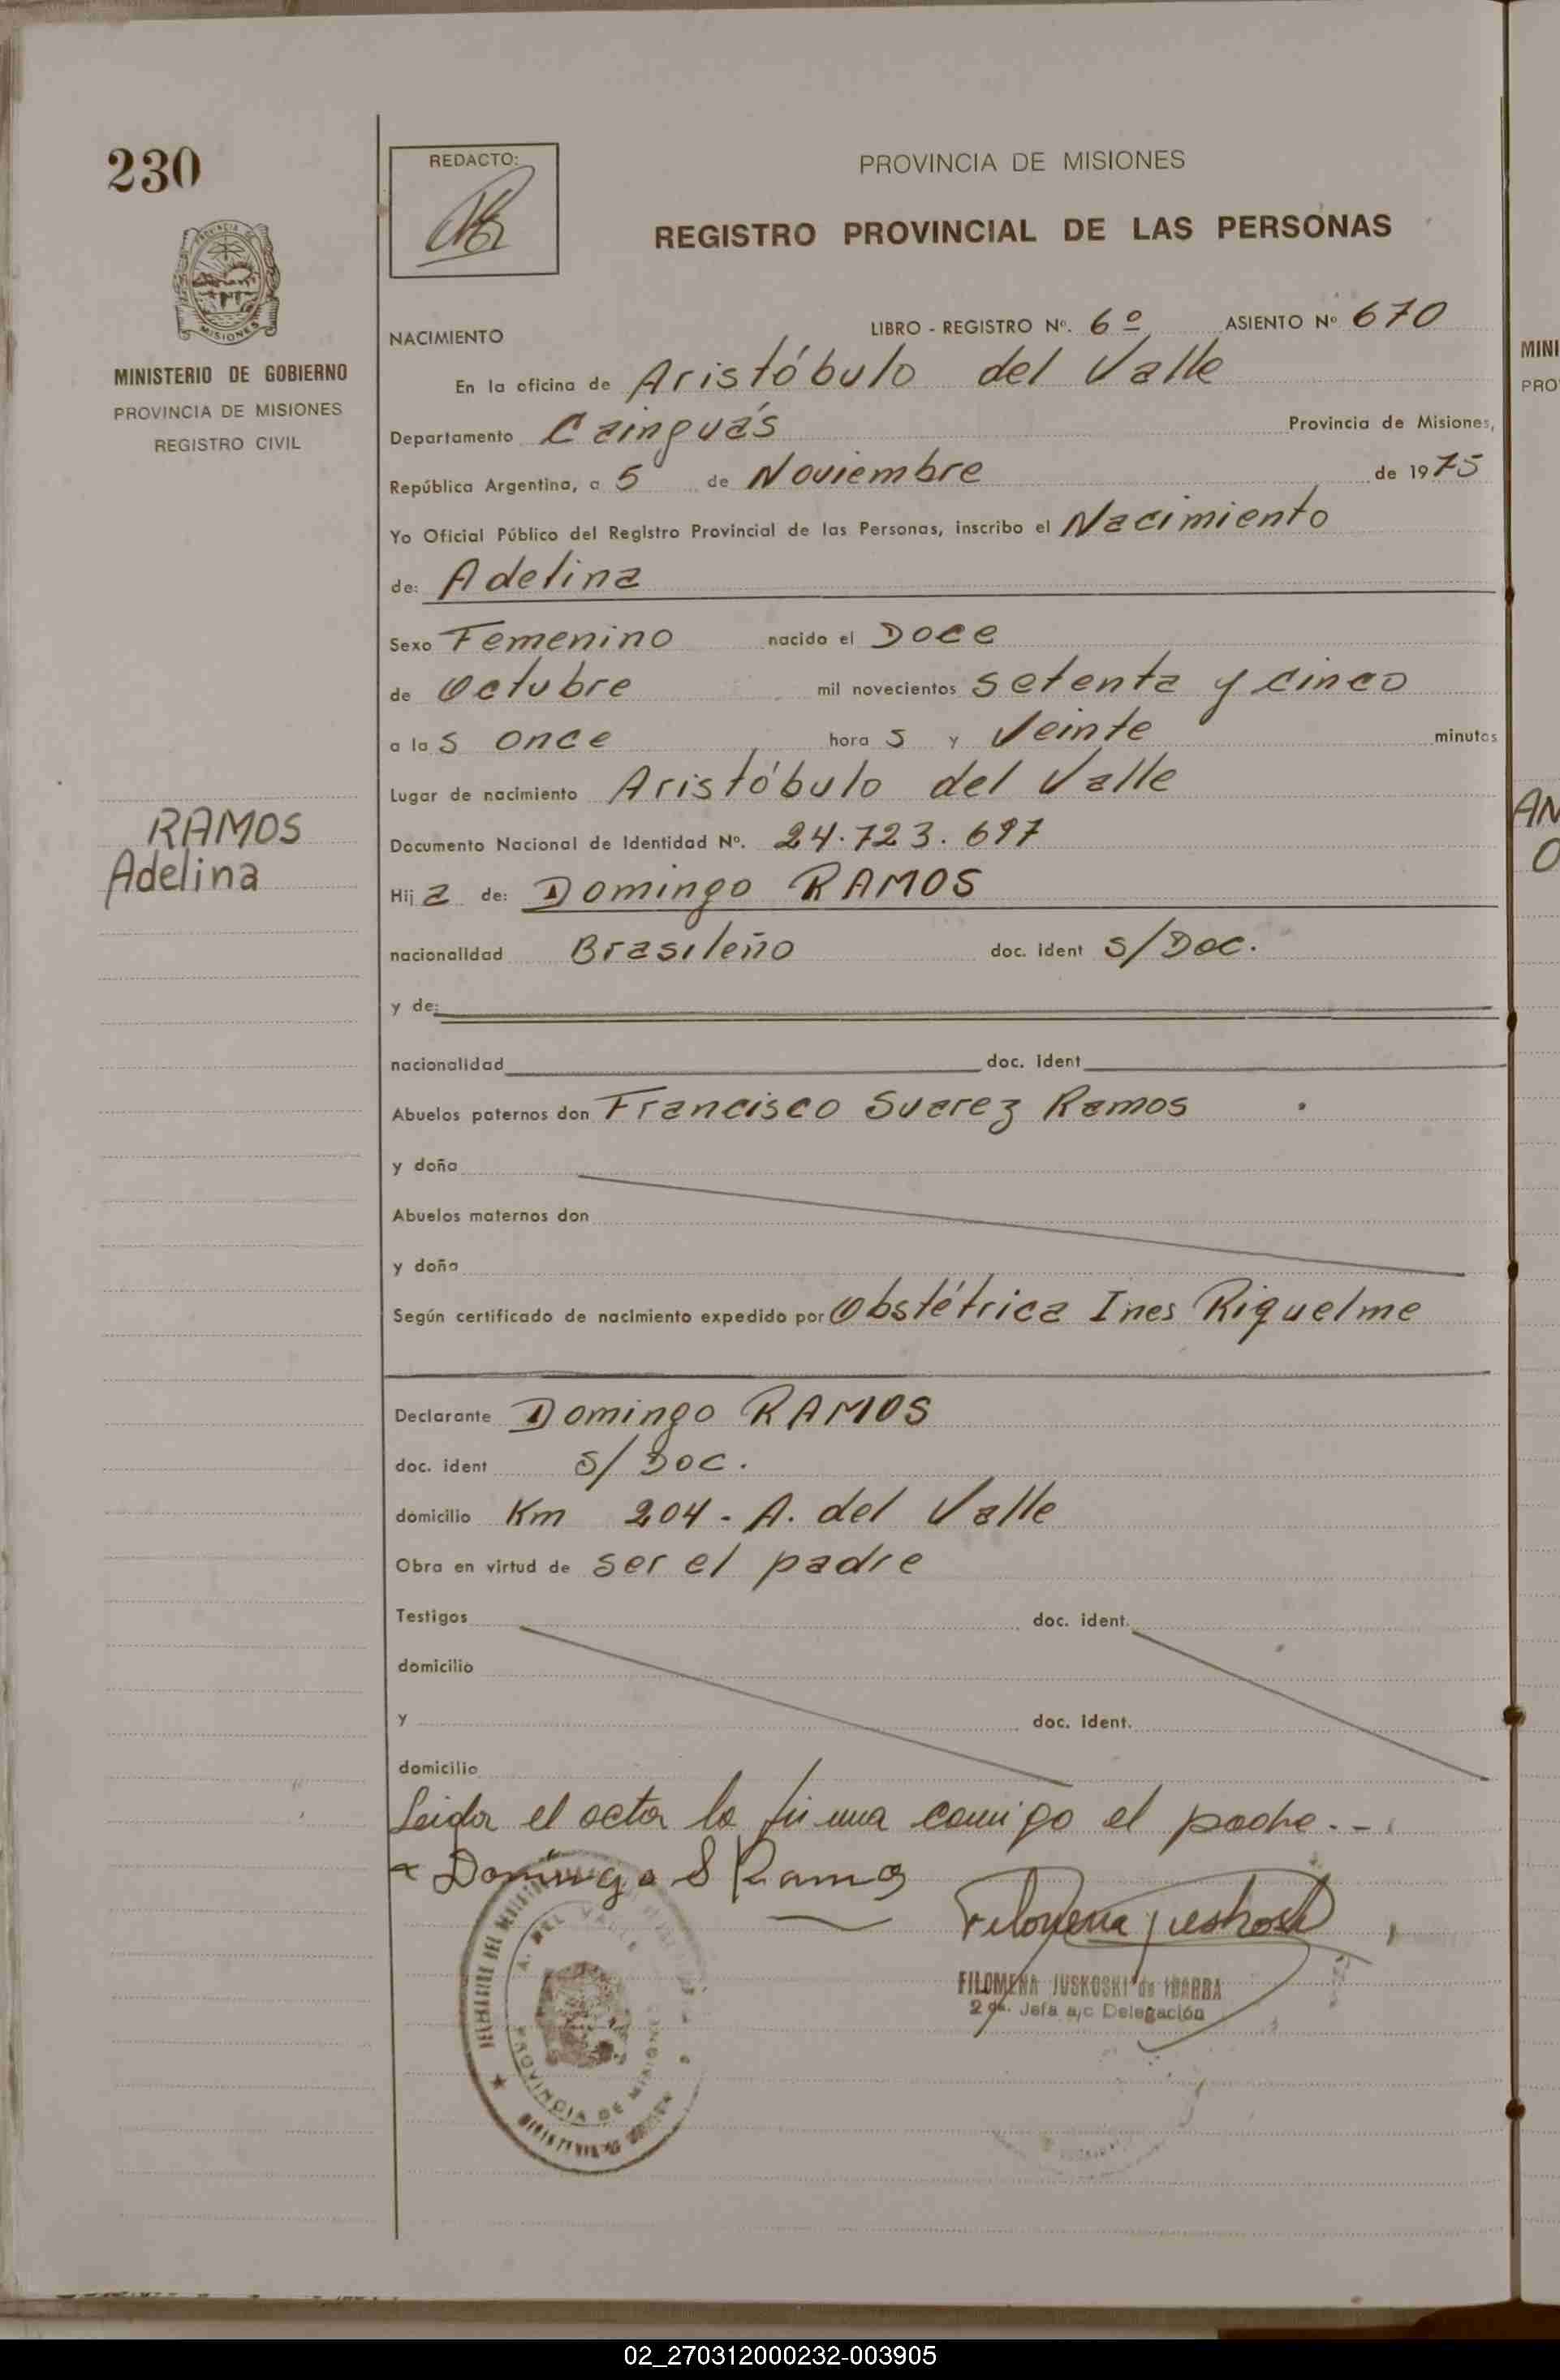 230
REDACTO:
PROVINCIA DE MISIONES
REGISTRO PROVINCIAL DE LAS PERSONAS
MISIONES
MINISTERIO DE GOBIERNO
PROVINCIA DE MISIONES
REGISTRO CIVIL
NACIMIENTO LIBRO - REGISTRO Nº. 6º ASIENTO Nº 670
En la oficina de Aristóbulo del Valle
Departamento Cainguás Provincia de Misiones,
República Argentina, a 5 de Noviembre de 1975
Yo Oficial Público del Registro Provincial de las Personas, inscribo el Nacimiento
de: Adelina
Sexo Femenino nacido el Doce
de Octubre mil novecientos setenta y cinco
a las once horas y Veinte minutos
Lugar de nacimiento Aristóbulo del Valle
RAMOS
Adelina
Documento Nacional de Identidad Nº. 24.723.697
Hija de: Domingo RAMOS
nacionalidad Brasileño doc. ident S/Doc.
y de:
nacionalidad doc. ident
Abuelos paternos don Francisco Suarez Ramos
y doña
Abuelos maternos don
y doña
Según certificado de nacimiento expedido por Obstétrica Ines Riquelme
Declarante Domingo RAMOS
doc. ident S/Doc.
domicilio Km 204 - A. del Valle
Obra en virtud de ser el padre
Testigos doc. ident.
domicilio
y doc. ident.
domicilio
Leida el acta la firma comigo el padre.--
Domingo S Ramos
Filomena Juskoski
FILOMENA JUSKOSKI de IBARRA
2da. Jefa a/c Delegación
A. DEL VALLE
PROVINCIA DE MISIONES
MINI
PRO
AN
O
02_270312000232-003905